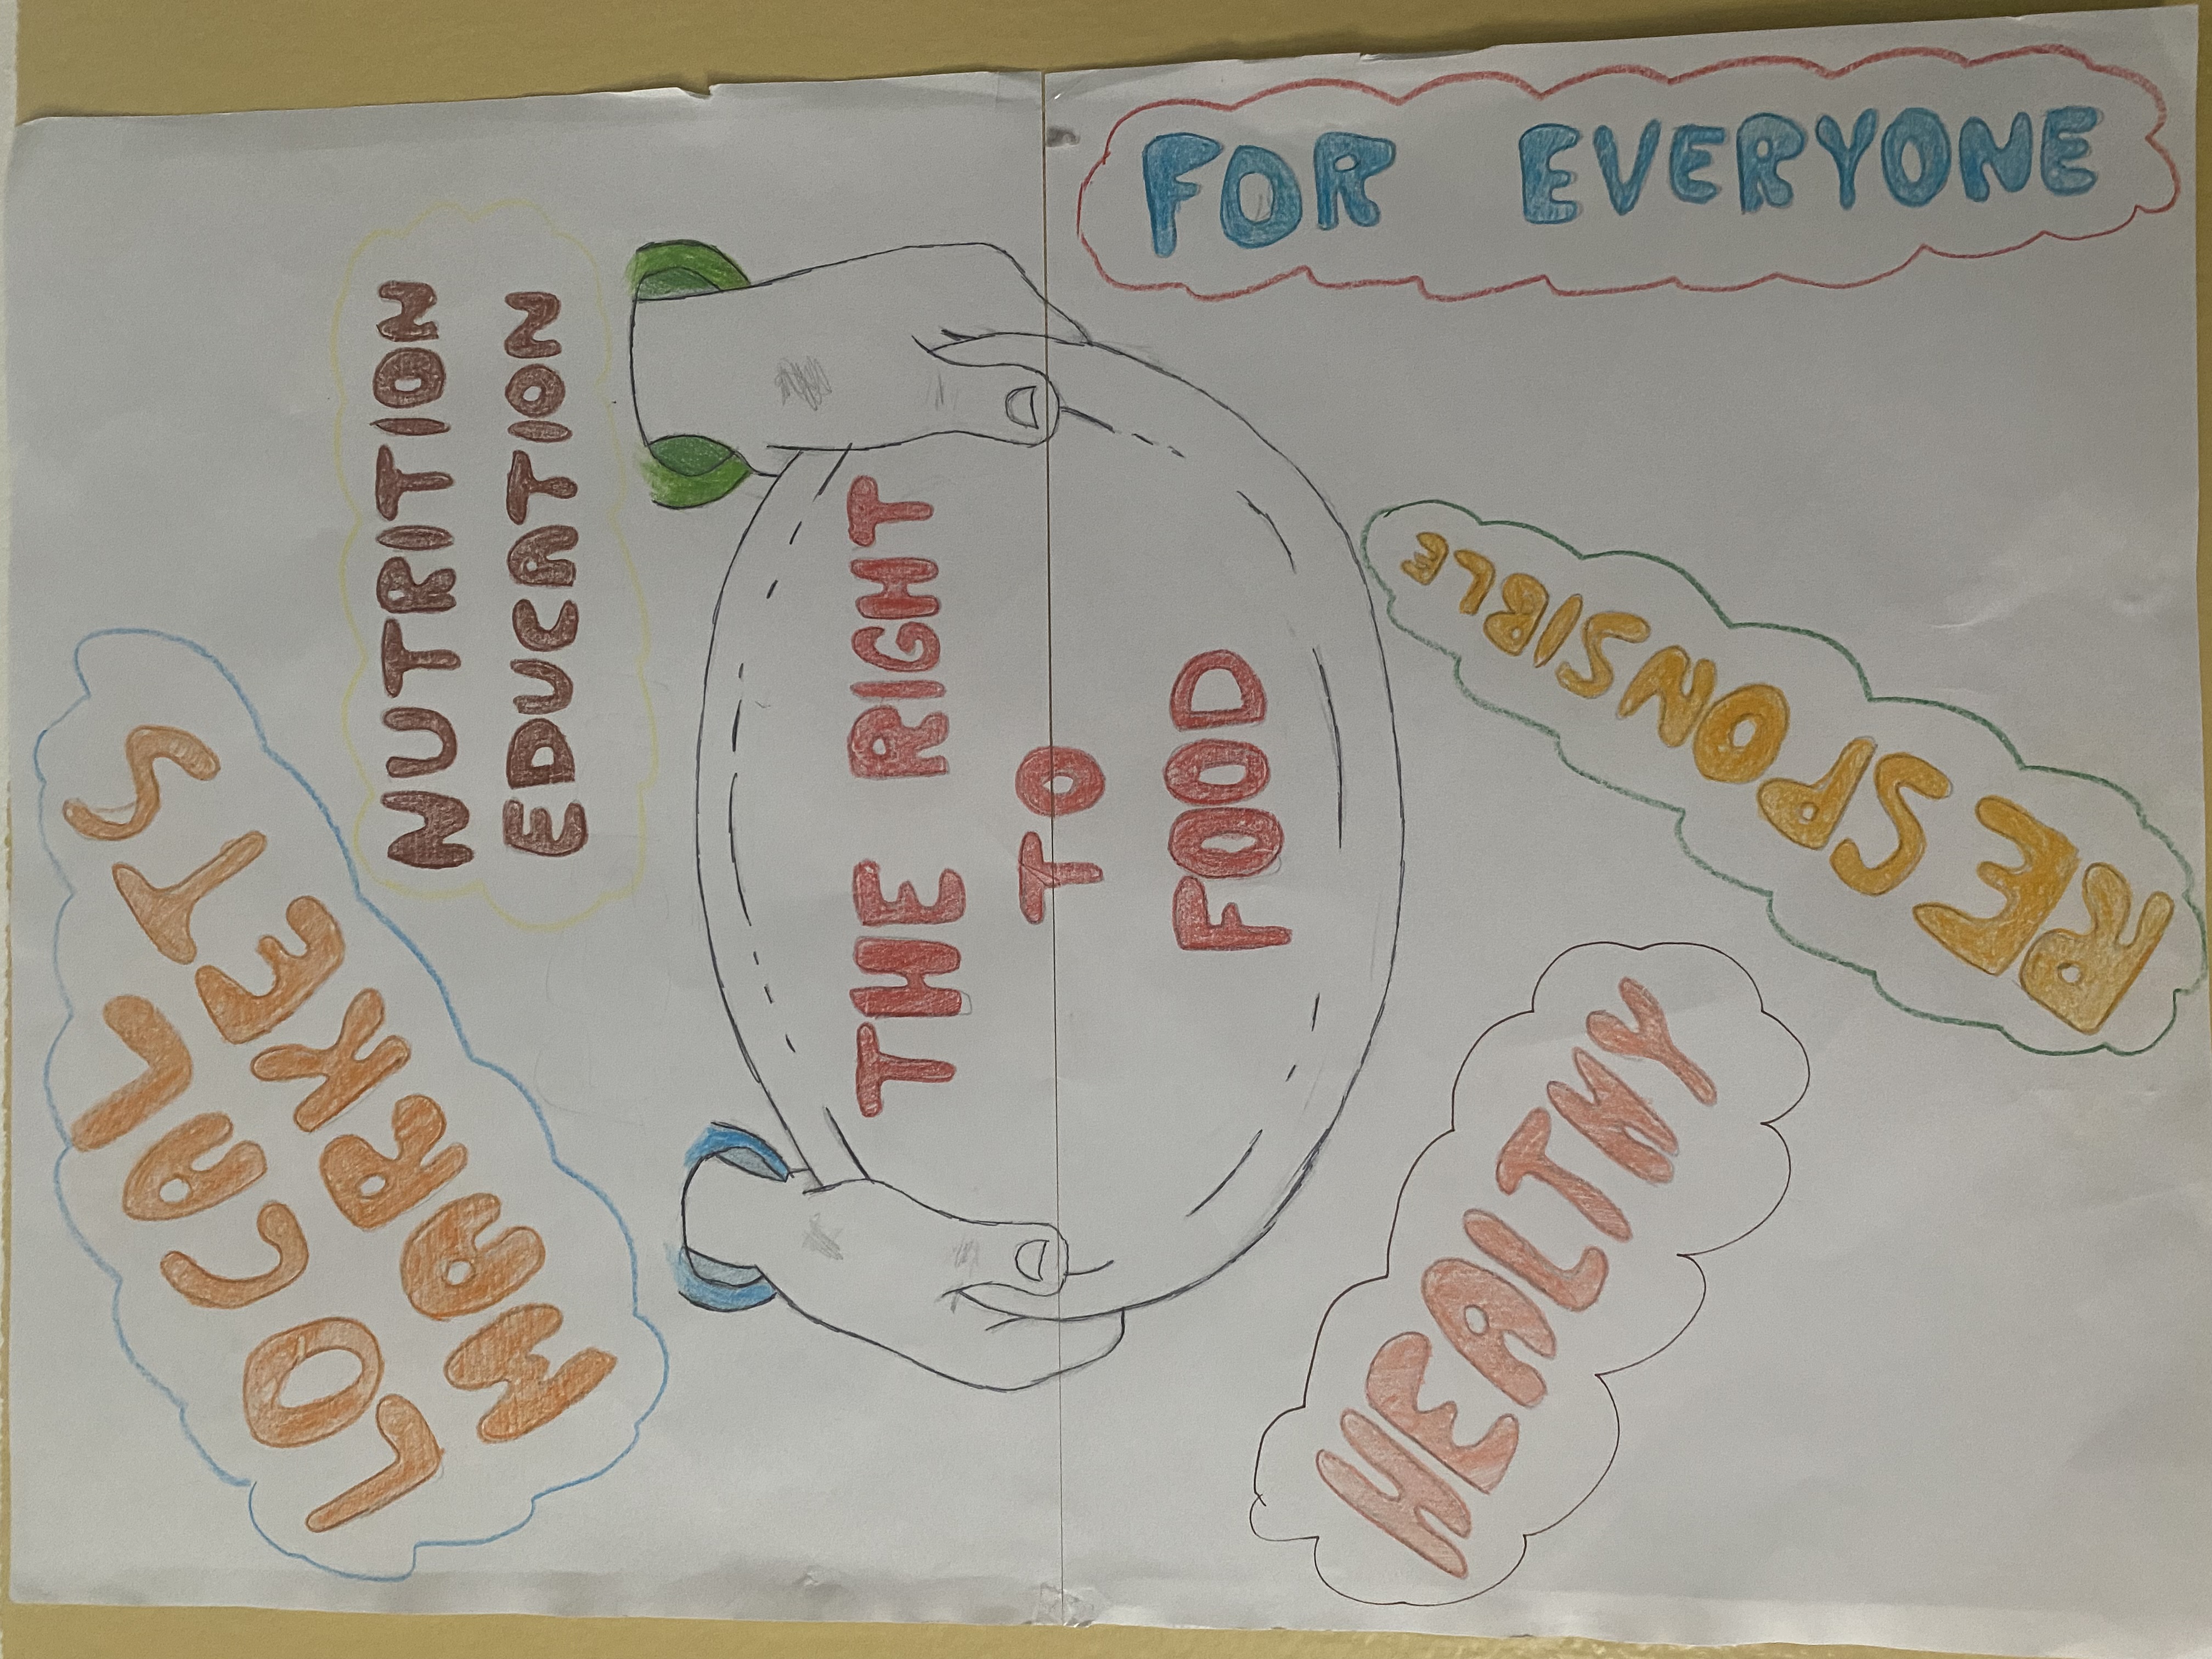 THE RIGHT
TO
FOOD
NUTRITION
EDUCATION
LOCAL
MARKETS
FOR EVERYONE
RESPONSIBLE
HEALTHY